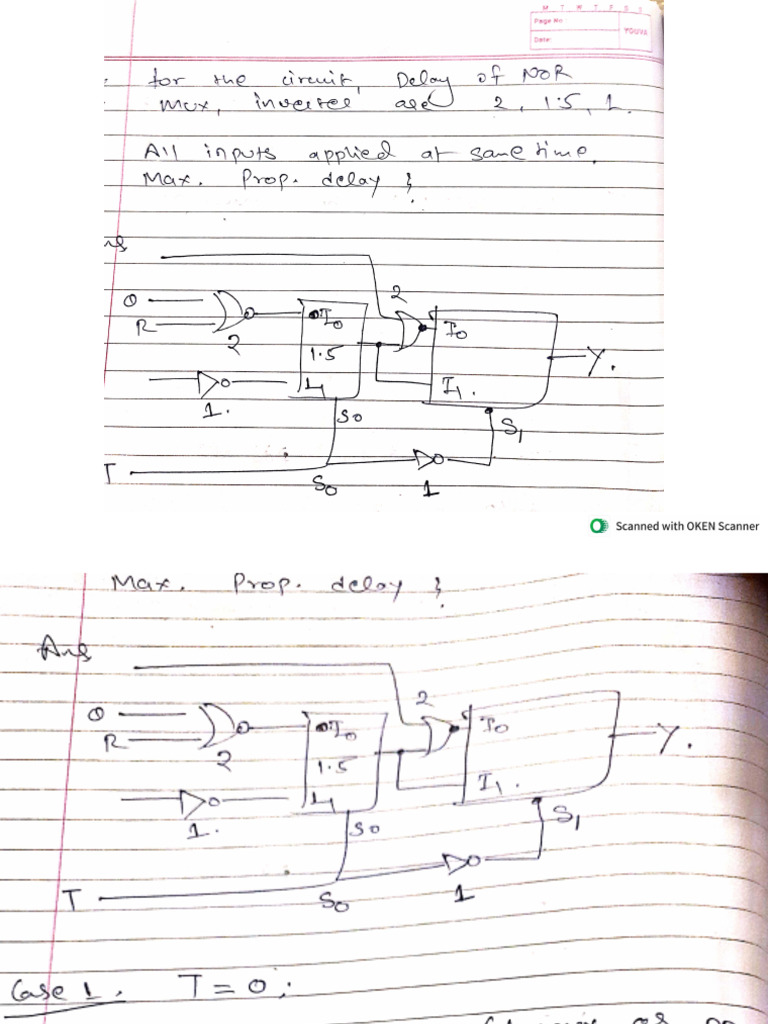 M T W T F S S
Page No
Date:
YOUVA
for the circuit, Delay of NOR
Mux, inverter are 2, 1.5, 1.
All inputs applied at same time.
Max. Prop. delay ?
Q
R
2
I0
1.5
I1
S0
2
I0
I1.
Y.
1.
S1
T
S0
1
Scanned with OKEN Scanner
Max. Prop. delay ?
Ans
Q
R
2
I0
1.5
I1
S0
2
I0
I1.
Y.
1.
S1
T
S0
1
Case 1. T=0;